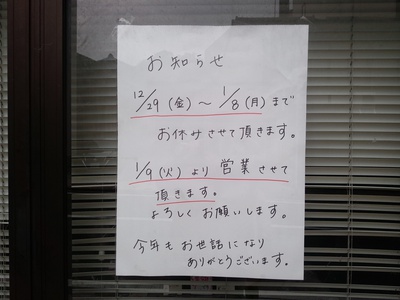 お知らせ
12/29(金)～1/8(月)まで
お休みさせて頂きます。
1/9(火)より営業させて
頂きます。
よろしくお願いします。
今年もお世話になり
ありがとうございます。